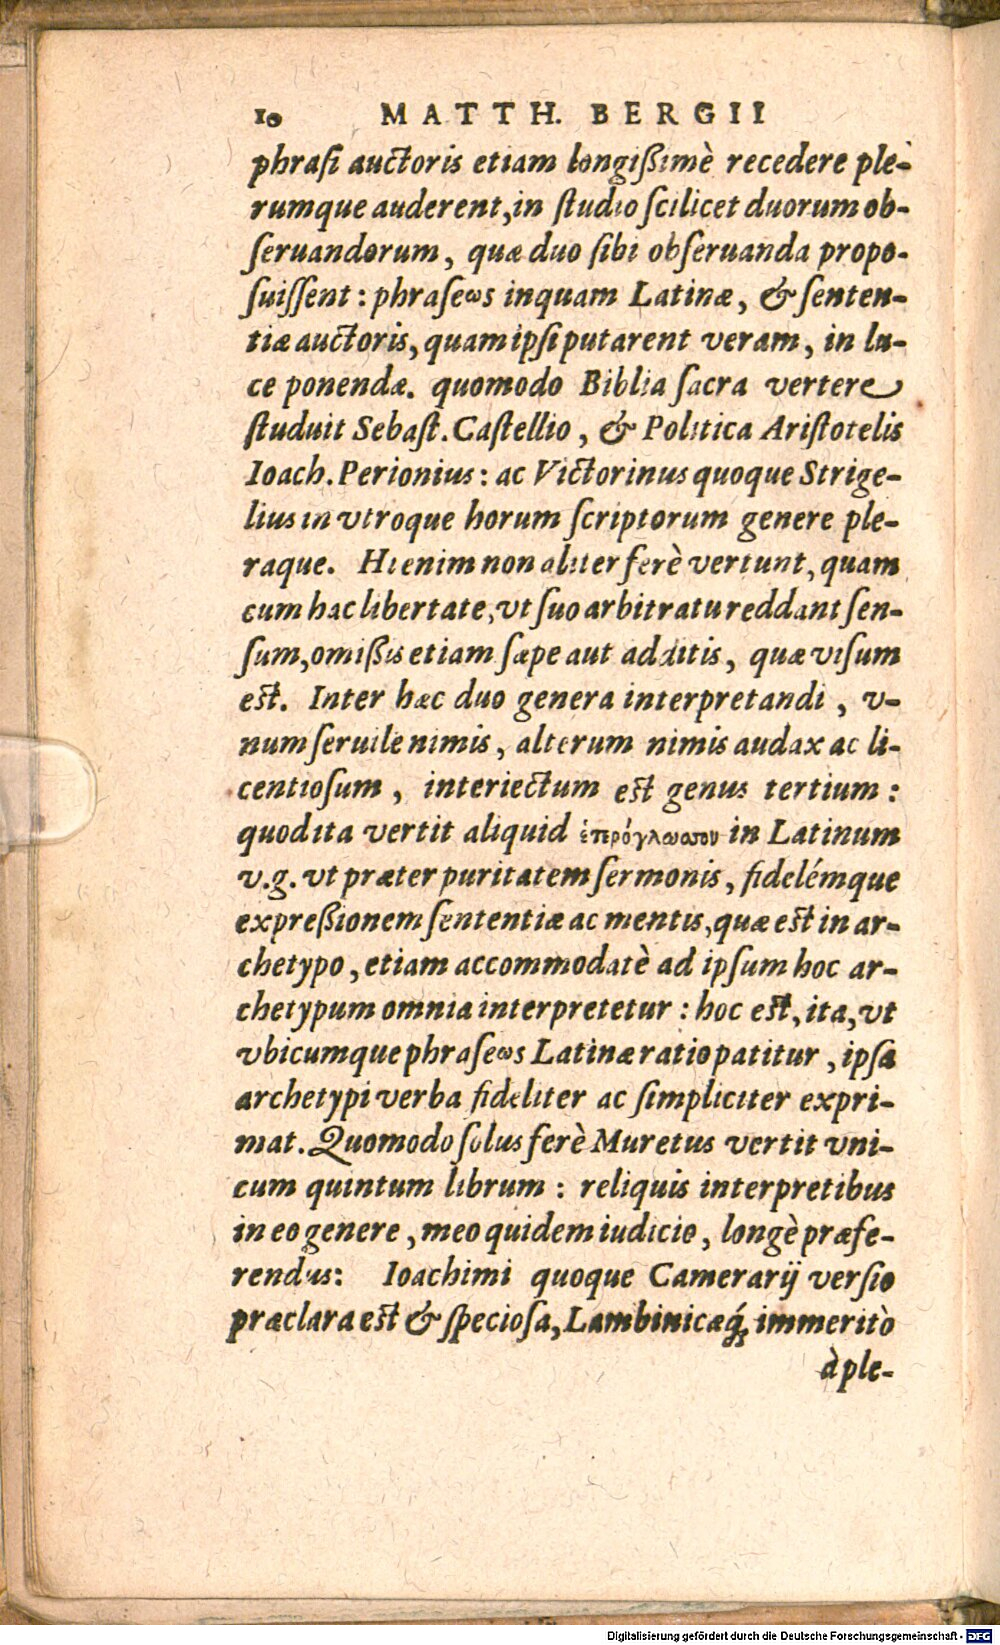 10 MATTH. BERGII
phraſi auctoris etiam longißimè recedere ple-
rumque auderent, in ſtudio ſcilicet duorum ob-
ſeruandorum, quæ duo ſibi obſeruanda propo-
ſuiſſent: phraſeωs inquam Latinæ, & ſenten-
tiæ auctoris, quam ipſi putarent veram, in lu-
ce ponendæ. quomodo Biblia ſacra vertere
ſtuduit Sebaſt. Caſtellio, & Politica Ariſtotelis
Ioach. Perionius: ac Victorinus quoque Strige-
lius in vtroque horum ſcriptorum genere ple-
raque. Hi enim non aliter ferè vertunt, quam
cum hac libertate, vt ſuo arbitratu reddant ſen-
ſum, omißis etiam ſæpe aut additis, quæ viſum
eſt. Inter hæc duo genera interpretandi, v-
num ſeruile nimis, alterum nimis audax ac li-
centioſum, interiectum eſt genus tertium:
quod ita vertit aliquid ἑτερόγλωσσον in Latinum
v.g. vt præter puritatem ſermonis, fidelémque
expreßionem ſententiæ ac mentis, quæ eſt in ar-
chetypo, etiam accommodatè ad ipſum hoc ar-
chetypum omnia interpretetur: hoc eſt, ita, vt
vbicumque phraſeωs Latinæ ratio patitur, ipſa
archetypi verba fideliter ac ſimpliciter expri-
mat. Quomodo ſolus ferè Muretus vertit vni-
cum quintum librum: reliquis interpretibus
in eo genere, meo quidem iudicio, longè præfe-
rendus: Ioachimi quoque Camerarij verſio
præclara eſt & ſpecioſa, Lambinicæq́; immeritò
à ple-
Digitalisierung gefördert durch die Deutsche Forschungsgemeinschaft - DFG